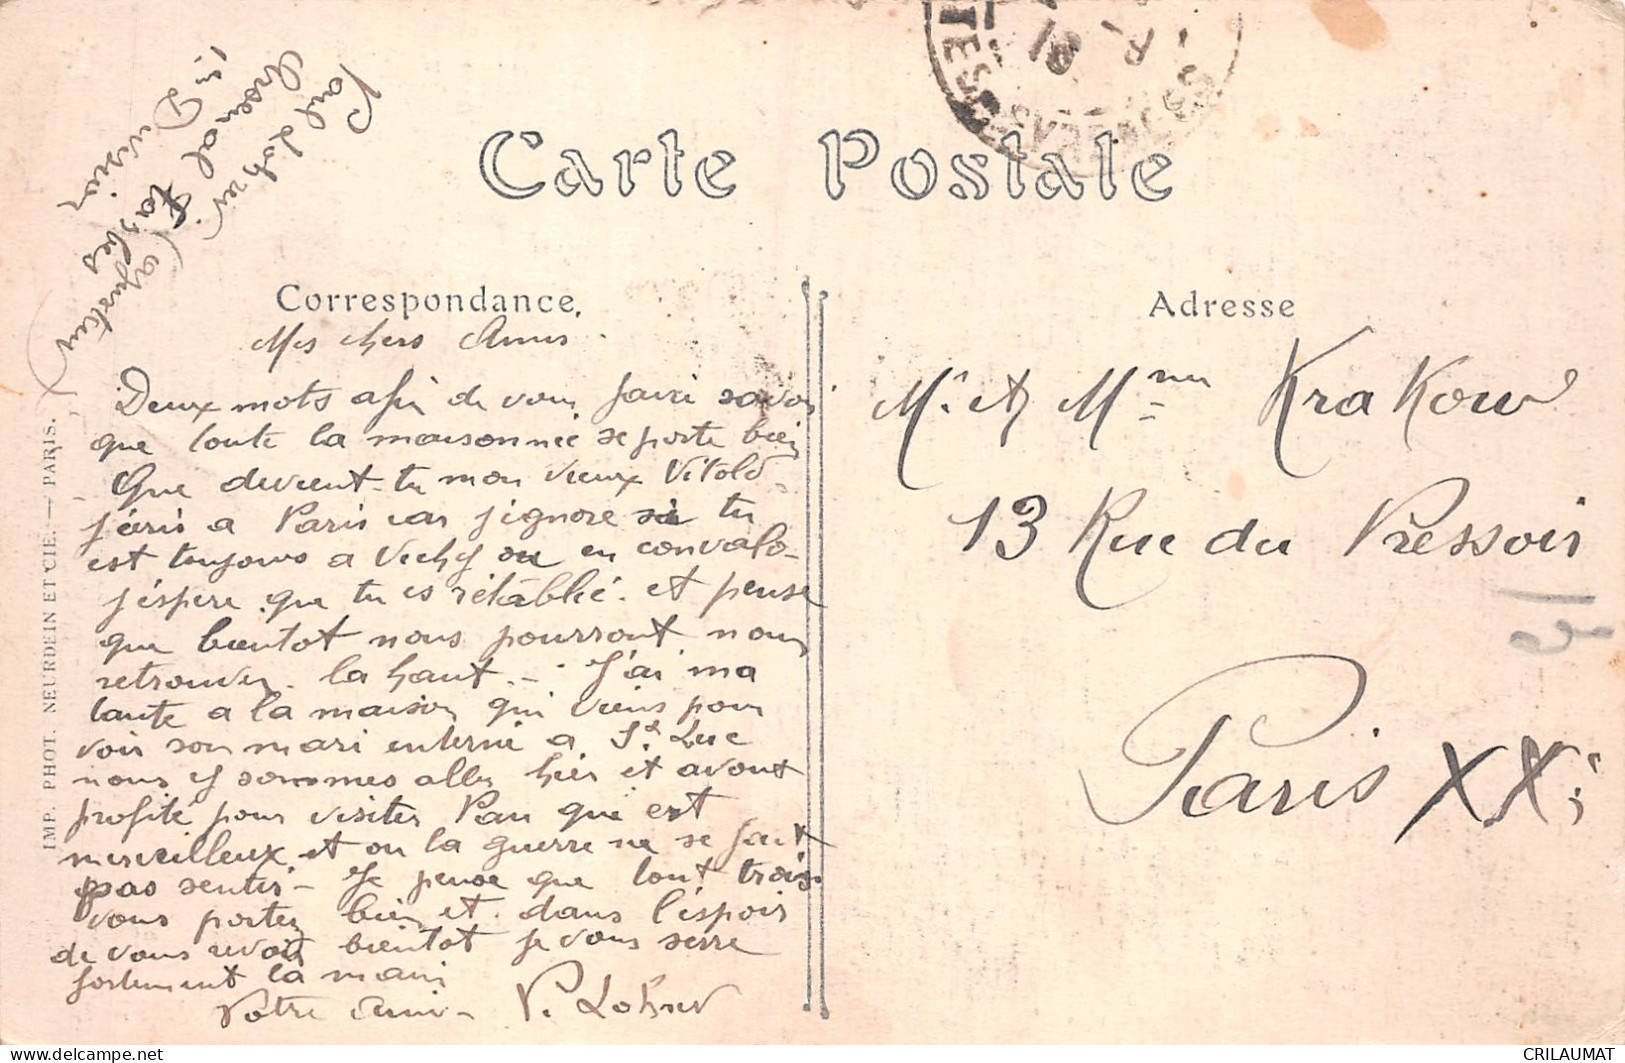 Carte Postale
Correspondance.
Adresse
Paul Lohner
Arsenal Tarbes
1re Division
(ajusteur)
Mes chers Amis.
Deux mots afin de vous faire savoir
que toute la maisonnée se porte bien
Que devient-tu mon vieux Vitold
j'écris a Paris car j'ignore si tu
est toujours a Vichy ou en convalo-
j'éspère que tu es rétablie. et pense
que bientot nous pourront nous
retrouver. la haut. - J'ai ma
tante a la maison qui viens pour
voir son mari interné a St Luc
nous y sommes aller hier et avont
profité pour visiter Pau qui est
merveilleux et ou la guerre ne se fait
pas sentir - Je pense que tout trois
vous portez bien et dans l'éspoir
de vous revoir bientot je vous serre
fortement la main
Votre ami - P. Lohner
Mr. et Mme Krakow
13 Rue du Pressoir
Paris XXe
IMP. PHOT. NEURDEIN ET CIE. — PARIS.
CRILAUMAT
delcampe.net